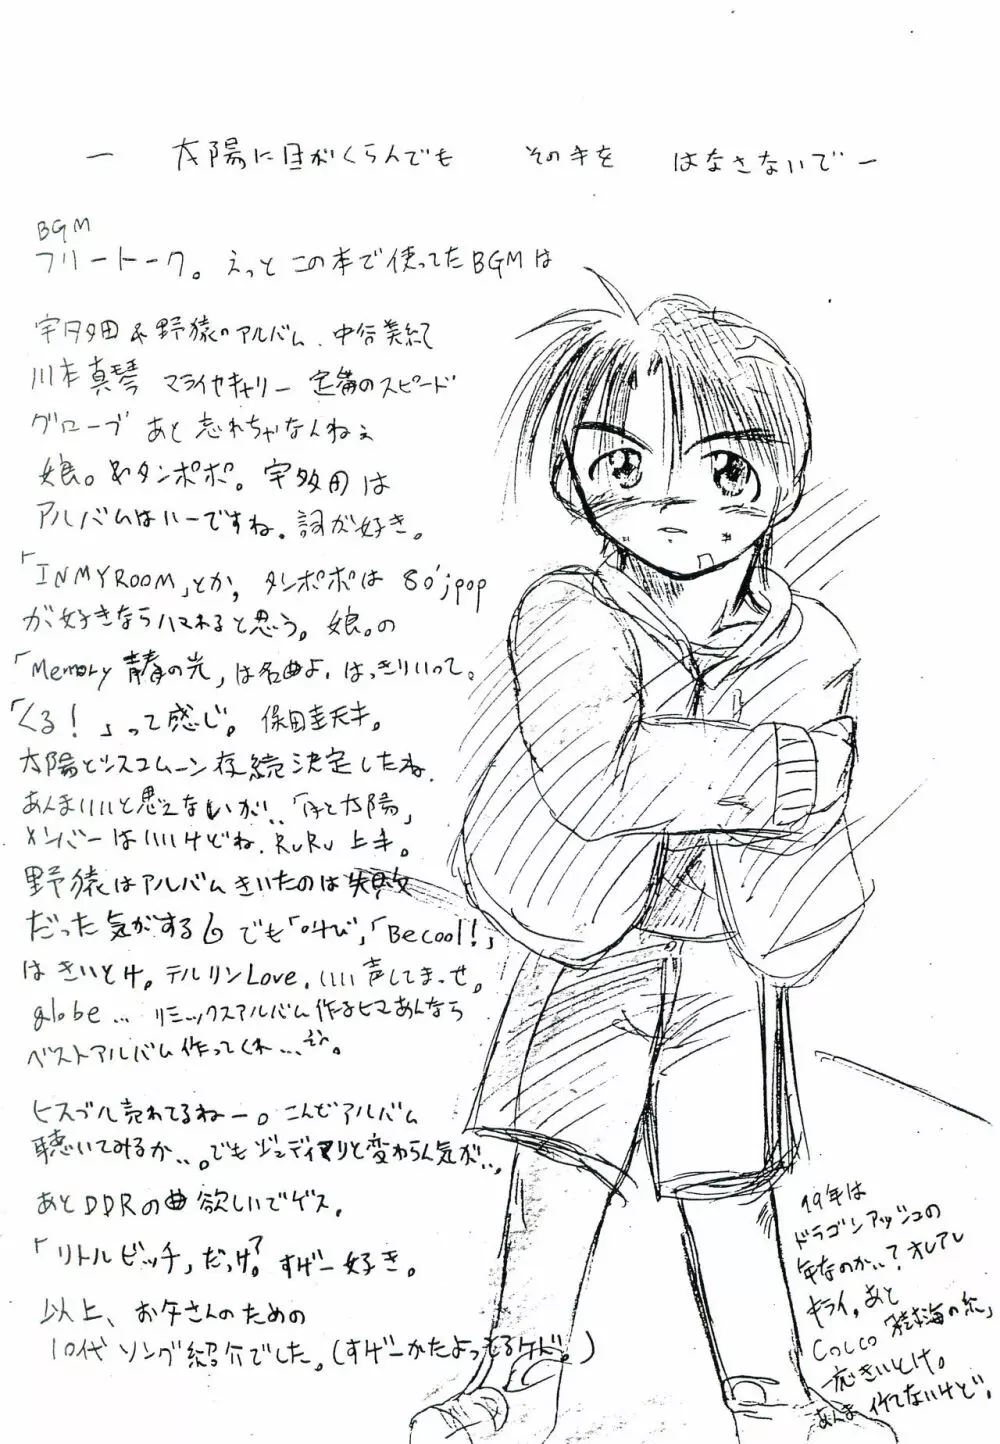 ー 太陽に目がくらんでも その手を はなさないでー
BGM
フリートーク。えっと この本で使ってたBGMは
宇多田&野猿のアルバム、中谷美紀
川本真琴 マライヤキャリー 定番のスピード
グローブ あと 忘れちゃなんねぇ
娘。&タンポポ。宇多田は
アルバムはいーですね。詞が好き。
「IN MY ROOM」とか。タンポポは 80'jpop
が好きならハマれると思う。娘。の
「Memory 青春の光」は名曲よ、はっきりいって。
「くる!」って感じ。保田圭天才。
太陽とシスコムーン存続決定したね。
あんまいいと思えないが…「月と太陽」
メンバーはいいけどね。RuRu 上手。
野猿はアルバムきいたのは失敗
だった気がする でも「叫び」,「Be cool!」
は きいとけ。テルリンLove. いい声してまっせ。
globe… リミックスアルバム作るヒマあんなら
ベストアルバム作ってくれ…
ヒスブル売れてるねー。こんどアルバム
聴いてみるか…。でもジュディマリと変わらん気が…。
あとDDRの曲欲しいでゲス。
「リトルビッチ」だっけ?すげー好き。
以上、お父さんのための
10代ソング紹介でした。(すげーかたよってるケド。)
19年は
ドラゴンアッシュの
年なのか…?オレアレ
キライ。あと
Cocco「樹海の糸」
一応きいとけ。
あんま 似てないけど。